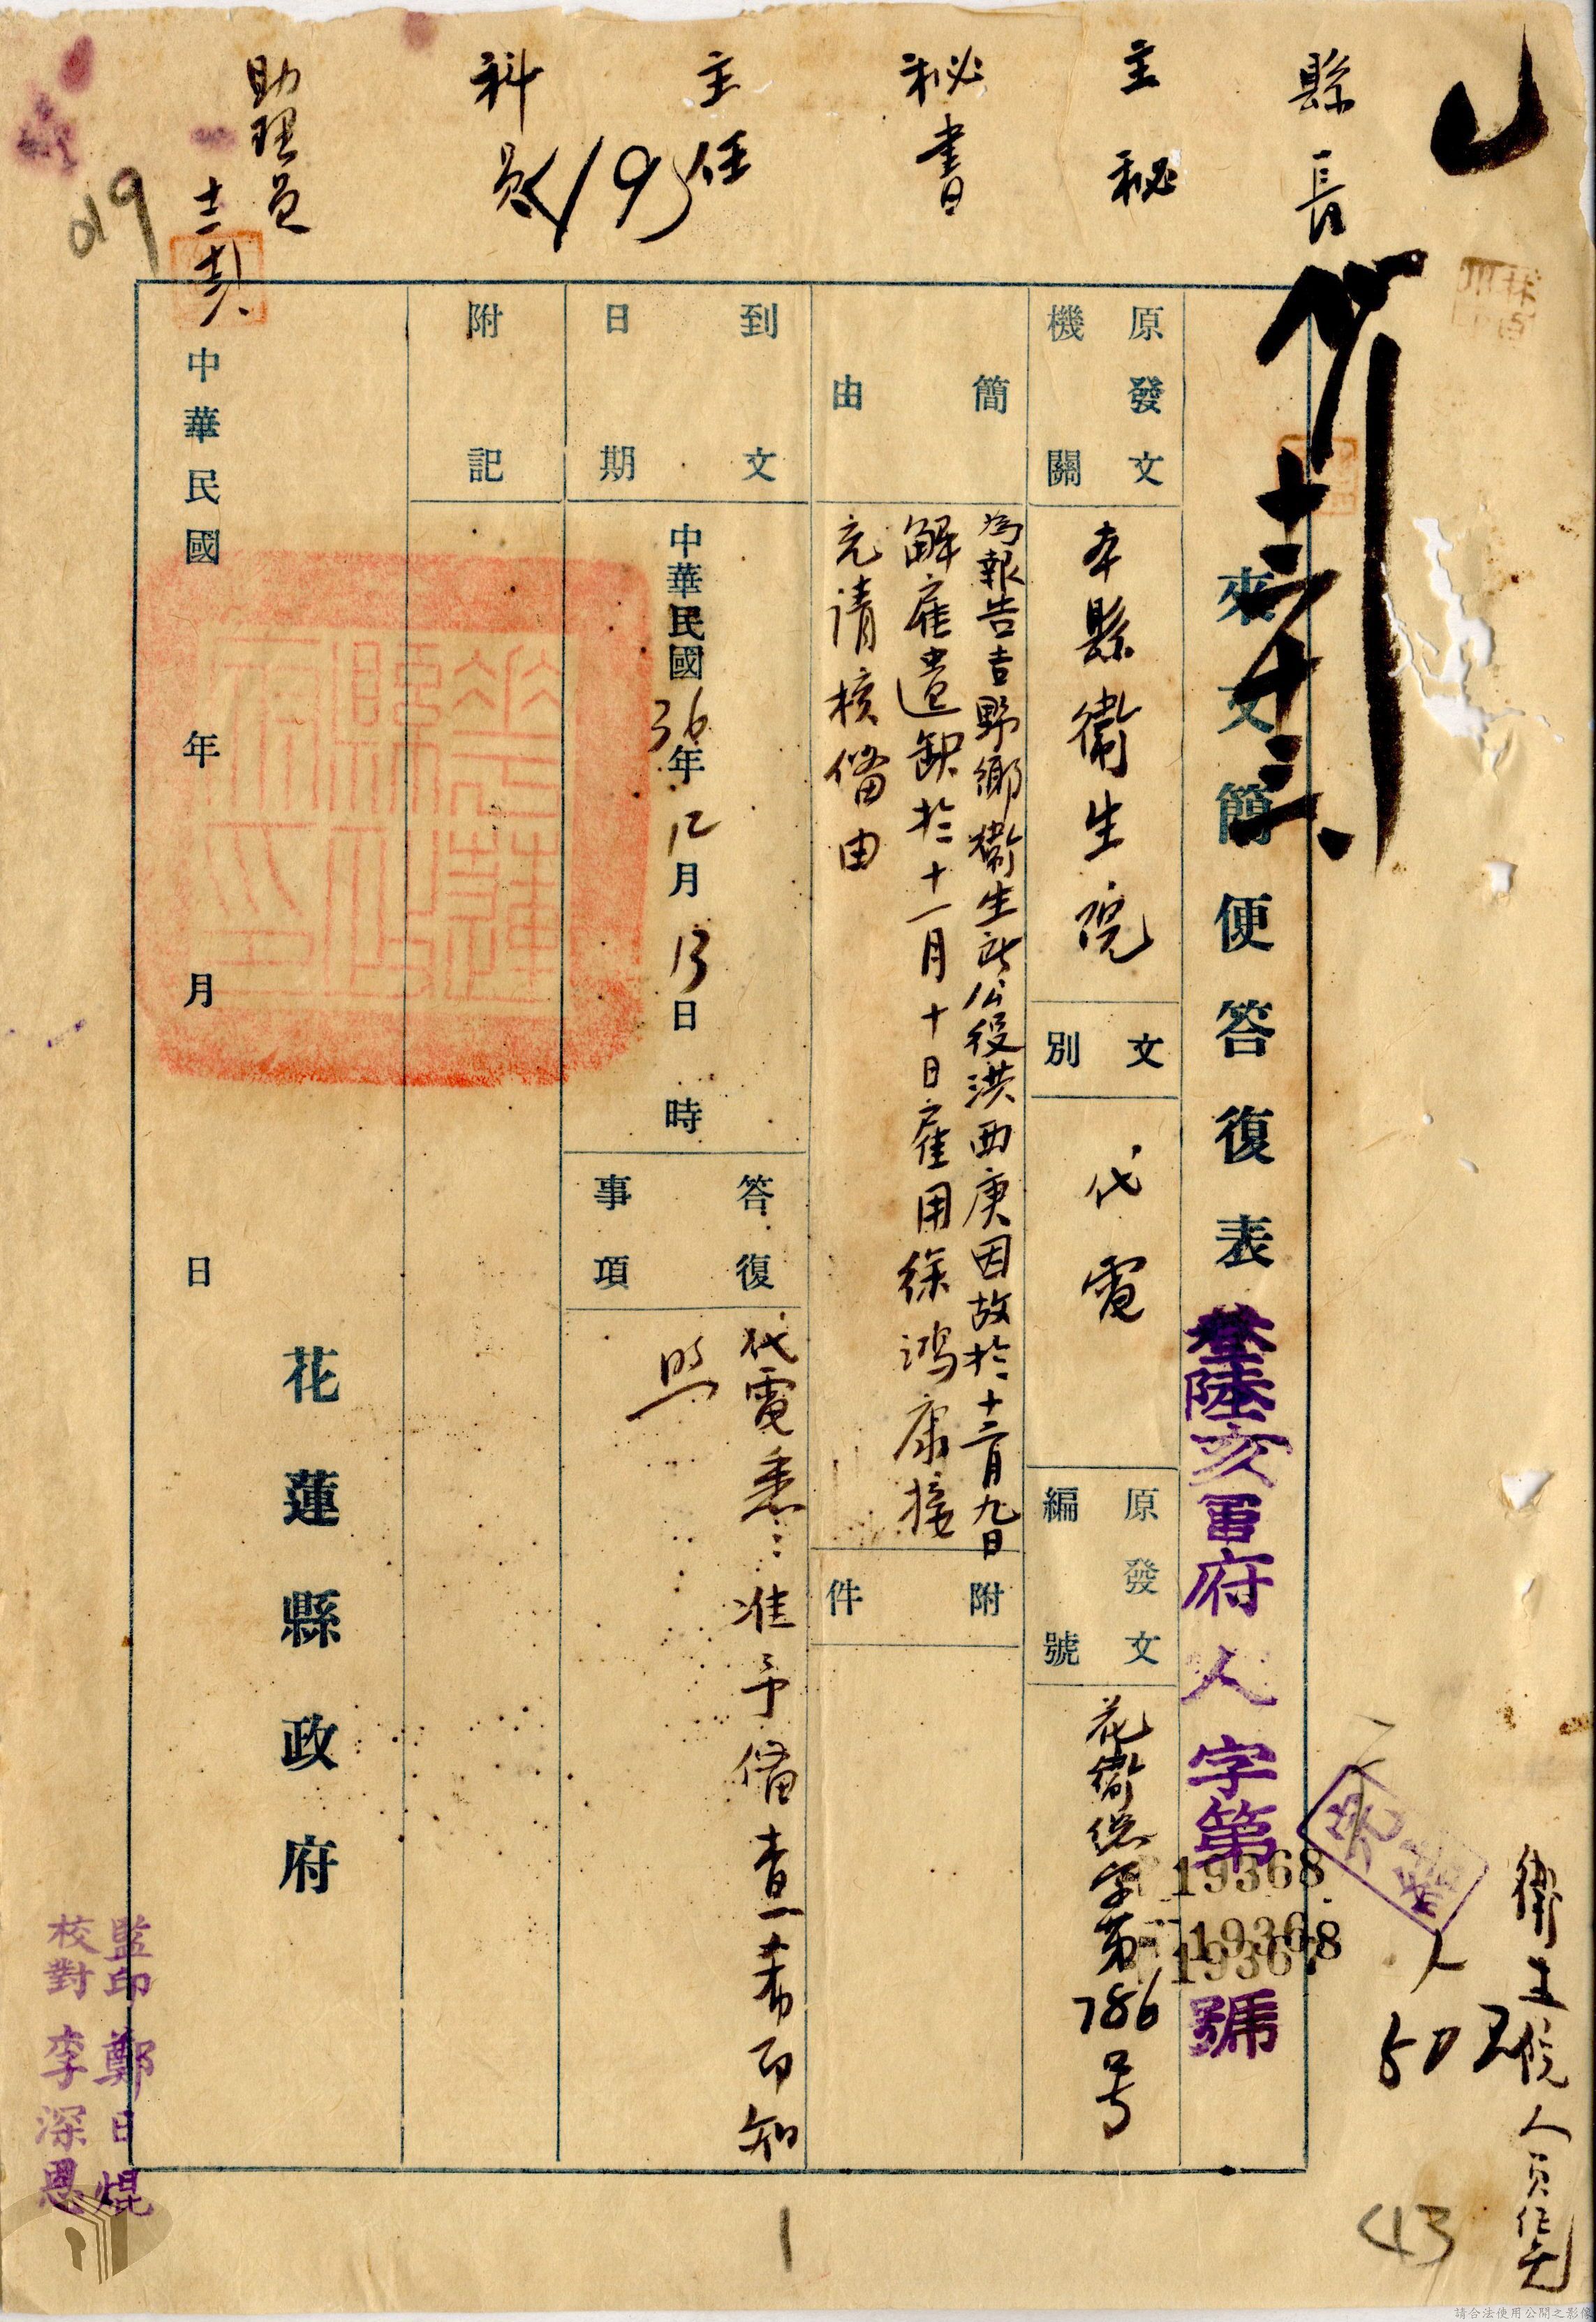 縣長
主秘
秘書
主任
科員
助理員
019
來文簡便答復表
叄陸亥
府人字第
號
19368
19368
19367
原發文機關
本縣衛生院
文別
代電
原發文編號
花衛總字第786号
簡由
為報告吉野鄉衛生所公役洪西庚因故於十一月九日
解雇遺缺於十一月十日雇用徐鴻康接
充請核備由
附件
到文日期
中華民國36年12月13日 時
答復事項
代電悉:准予備查希即知
照
附記
花蓮縣政府
中華民國 年 月 日
監印 鄭日焜
校對 李深恩
花蓮縣政府印
人
43
1
請合法使用公開之影像